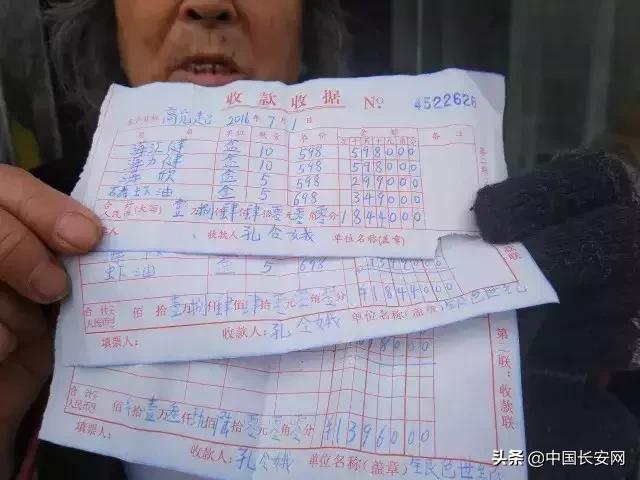 收款收据 No 4522626
2016年7月1日
品名 单位 数量 单价 金额 备注
海江健 盒 10 598 598000
海力健 盒 10 598 598000
海欣 盒 5 598 299000
虾油 盒 5 698 349000
合计人民币(大写) 壹万捌仟肆佰肆拾零元零角零分 1844000
收款人 孔令娥 单位名称(盖章)
虾油 盒 5 698
合计人民币 佰 拾 壹万捌仟肆佰肆拾零元零角零分 ¥1844000
填票人: 收款人: 孔令娥 单位名称(盖章)
第二联:收款联
合计人民币 佰 拾壹万叁仟玖佰陆拾零元零角零分 ¥1396000
填票人: 收款人: 孔令娥 单位名称(盖章)
头条 @中国长安网